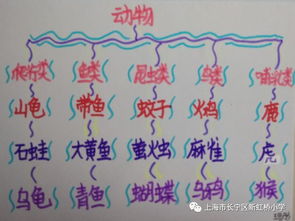 动物
爬行类 鱼类 昆虫类 鸟类 哺乳类
山龟 带鱼 蚊子 火鸡 鹿
石蛙 大黄鱼 萤火虫 麻雀 虎
乌龟 青鱼 蝴蝶 乌鸦 猴
上海市长宁区新虹桥小学